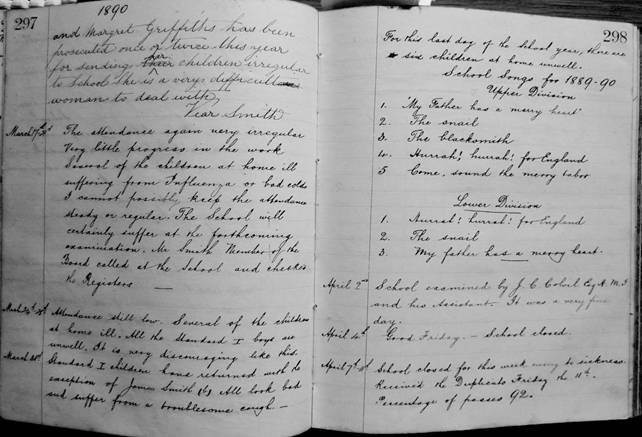 297
1890
and Margret Griffiths has been
prosecuted once or twice this year
for sending her children irregular
to School she is a very difficult
woman to deal with.
Vear Smith
March 17th
The attendance again very irregular
Very little progress in the work
Several of the children at home ill
suffering from Influenza or bad colds
I cannot possibly keep the attendance
steady or regular. The School will
certainly suffer at the forthcoming
examination. Mr Smith Member of the
Board called at the School and checked
the Registers —
March 24th
Attendance still low. Several of the children
at home ill. All the Standard I boys are
unwell. It is very discouraging like this.
March
Standard I children home returned with the
exception of James Smith All look bad
and suffer from a troublesome cough —
298
For this last day of the School year, there are
six children at home unwell.
School Songs for 1889-90
Upper Division
1. 'My Father has a merry heart'
2. The snail
3. The blacksmith
4. Hurrah! hurrah! for England
5 Come, sound the merry tabor
Lower Division
1. Hurrah! hurrah! for England
2. The snail
3. My father has a merry heart.
April 2nd
School examined by J. C. Esq H. M. I
and his Assistant. It was a very fine
day.
April 4th
Good Friday. — School closed.
April 7th
School closed for this week owing to sickness
Received the Duplicate Friday the 11th.
Percentage of passes 92.